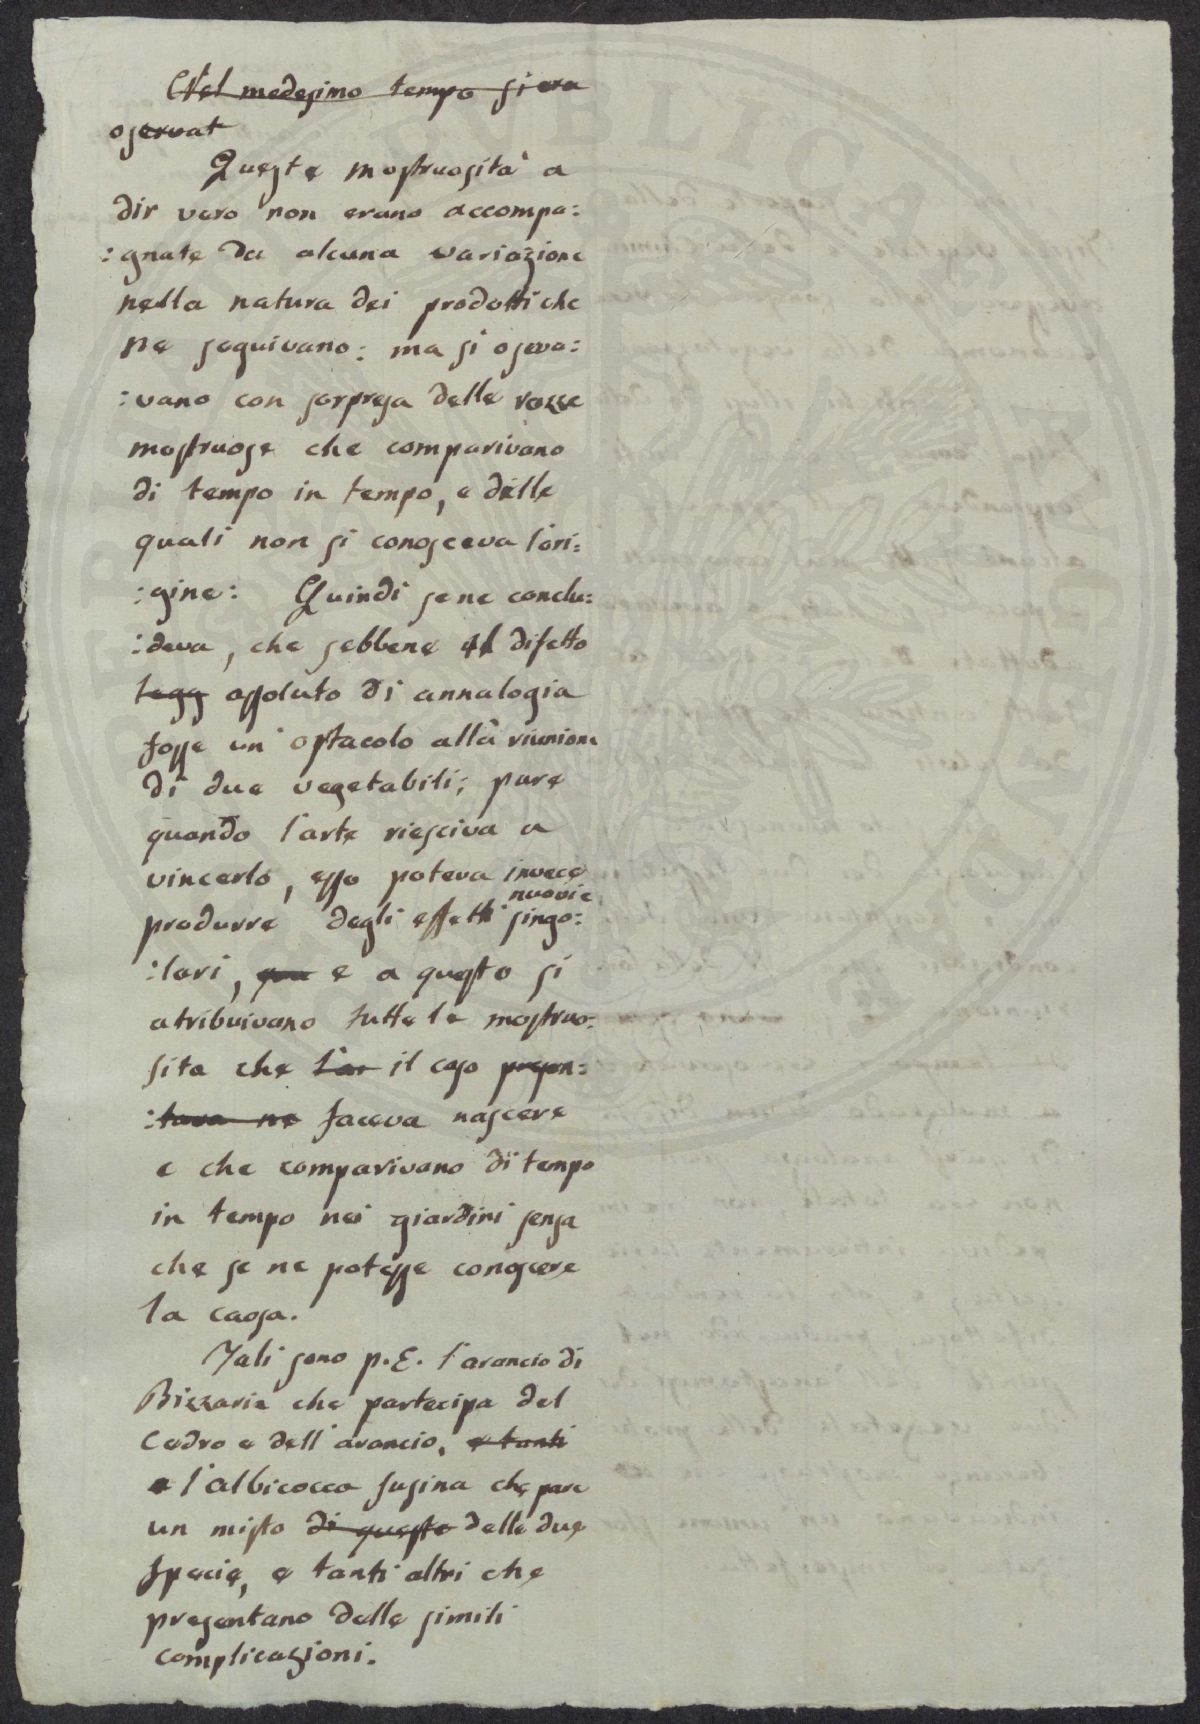 Nel medesimo tempo si era
oservat
Queste mostruosità a
dir vero non erano accompa:
:gnate da alcuna variazione
nella natura dei prodotti che
ne seguivano: ma si oserva:
:vano con sorpresa delle razze
mostruose che comparivano
di tempo in tempo, e delle
quali non si conosceva l'ori:
:gine: Quindi se ne conclu:
:deva, che sebbene il difetto
legg assoluto di annalogia
fosse un ostacolo alla riunione
di due vegetabili; pure
quando l'arte riesciva a
vincerlo, esso poteva invece
produrre degli effetti nuovi e singo:
:lari, qua e a questo si
atribuivano tutte le mostruo:
sita che l'ar il caso presen:
:tava ne faceva nascere
e che comparivano di tempo
in tempo nei giardini senza
che se ne potesse conoscere
la causa.
Tali sono p. E. l'arancio di
Bizzaria che partecipa del
Cedro e dell'arancio, e tanti
e l'albicocco susina che pare
un misto di queste delle due
specie, e tanti altri che
presentano delle simili
complicazioni.